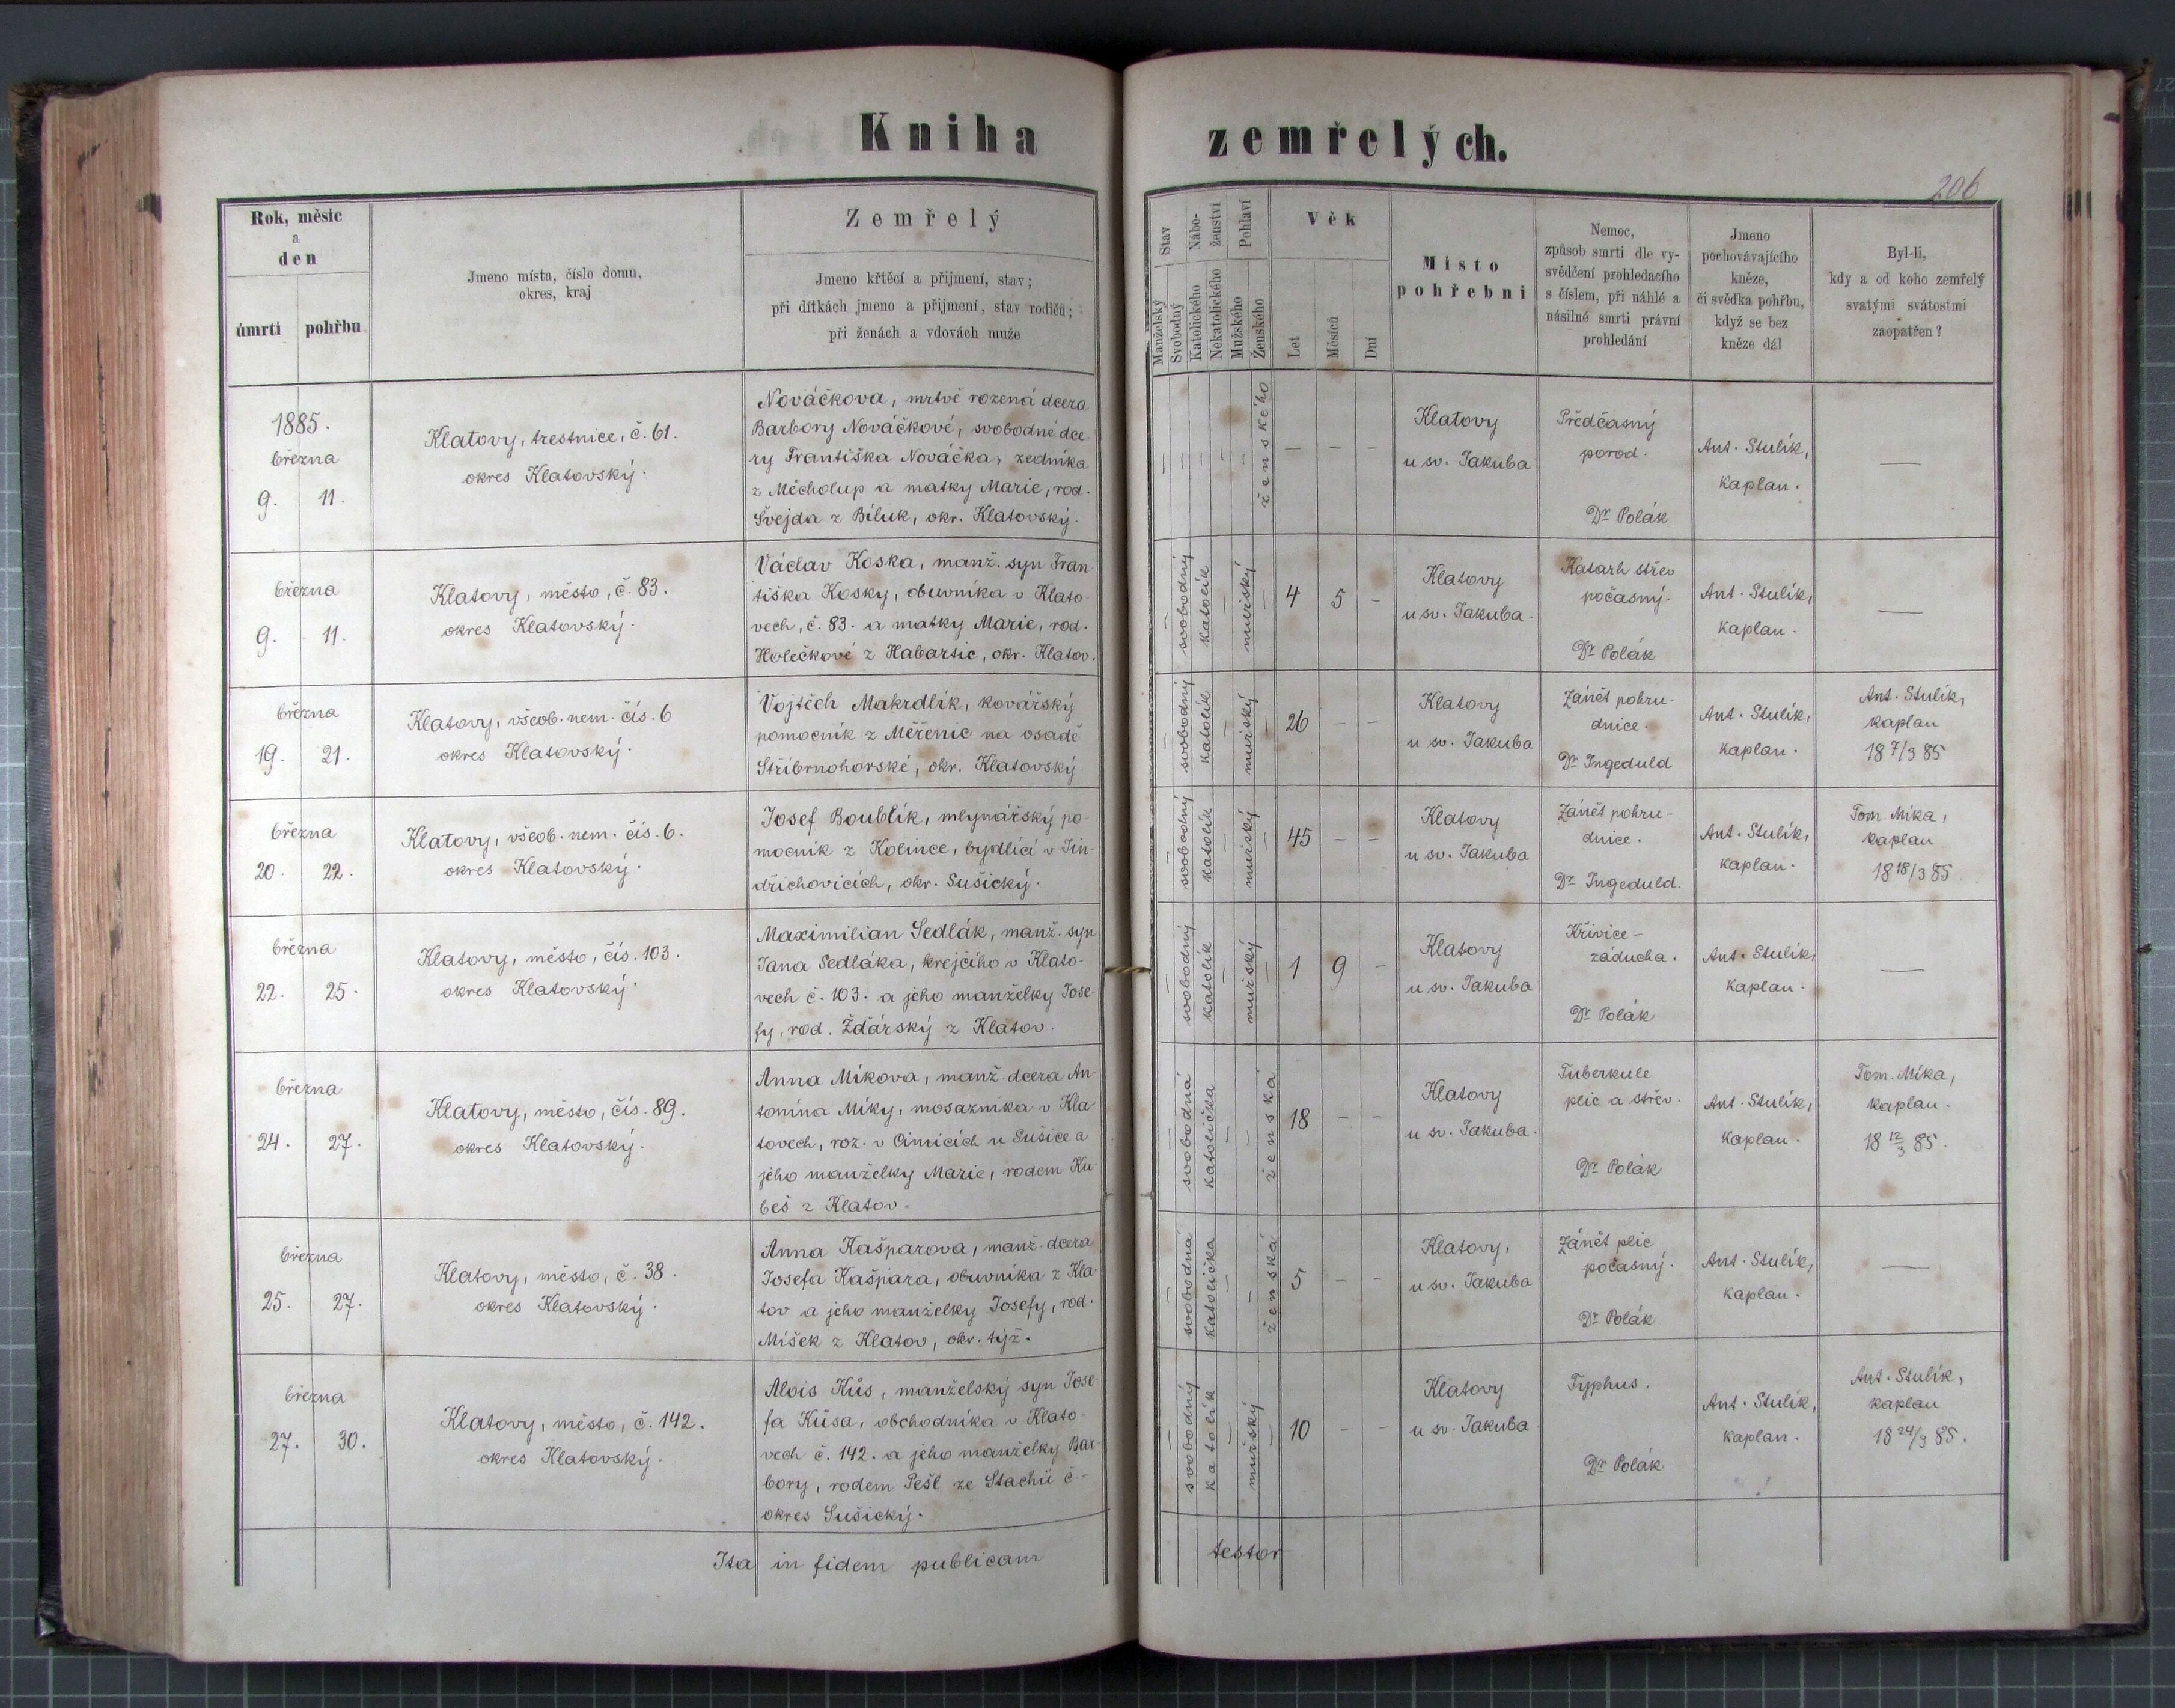 Kniha zemřelých.
206
Rok, měsíc
a
den
úmrtí
pohřbu
Jmeno místa, číslo domu,
okres, kraj
Zemřelý
Jmeno křtěcí a přijmení, stav;
při dítkách jmeno a přijmení, stav rodičů;
při ženách a vdovách muže
Stav
Nábo-
ženství
Pohlaví
Manželský
Svobodný
Katolického
Nekatolického
Mužského
Ženského
Věk
Let
Měsíců
Dní
Místo
pohřební
Nemoc,
způsob smrti dle vy-
svědčení prohledacího
s číslem, při náhlé a
násilné smrti právní
prohledání
Jmeno
pochovávajícího
kněze,
či svědka pohřbu,
když se bez
kněze dál
Byl-li,
kdy a od koho zemřelý
svatými svátostmi
zaopatřen?
1885.
března
9. 11.
Klatovy, trestnice, č. 61.
okres Klatovský.
Nováčkova, mrtvě rozená dcera
Barbory Nováčkové, svobodné dce-
ry Františka Nováčka, zedníka
z Měcholup a matky Marie, rod.
Švejda z Biluk, okr. Klatovský.
— — — — — ženského
— — —
Klatovy
u sv. Jakuba
Předčasný
porod.
Dr Polák
Ant. Stulík,
kaplan.
—
března
9. 11.
Klatovy, město, č. 83.
okres Klatovský.
Václav Koska, manž. syn Fran-
tiška Kosky, obuvníka v Klato-
vech, č. 83. a matky Marie, rod.
Holečkové z Habartic, okr. Klatov.
— svobodný katolík — mužský —
4 5 -
Klatovy
u sv. Jakuba.
Katarh střev
počasný.
Dr Polák
Ant. Stulík,
kaplan.
—
března
19. 21.
Klatovy, všeob. nem. čís. 6
okres Klatovský.
Vojtěch Makrdlík, kovářský
pomocník z Měřenic na osadě
Stříbrnohorské, okr. Klatovský
— svobodný katolík — mužský —
26 - -
Klatovy
u sv. Jakuba
Zánět pohru-
dnice.
Dr Ingeduld
Ant. Stulík,
kaplan.
Ant. Stulík,
kaplan
18 7/3 85
března
20. 22.
Klatovy, všeob. nem. čís. 6.
okres Klatovský.
Josef Boublík, mlynářský po-
mocník z Kolince, bydlící v Jin-
dřichovicích, okr. Sušický.
— svobodný katolík — mužský —
45 - -
Klatovy
u sv. Jakuba
Zánět pohru-
dnice.
Dr Ingeduld.
Ant. Stulík,
kaplan.
Tom. Míka,
kaplan
18 18/3 85
března
22. 25.
Klatovy, město, čís. 103.
okres Klatovský.
Maximilian Sedlák, manž. syn
Jana Sedláka, krejčího v Klato-
vech č. 103. a jeho manželky Jose-
fy, rod. Žďárský z Klatov.
— svobodný katolík — mužský —
1 9 -
Klatovy
u sv. Jakuba
Křivice-
záducha.
Dr Polák
Ant. Stulík,
kaplan.
—
března
24. 27.
Klatovy, město, čís. 89.
okres Klatovský.
Anna Míkova, manž. dcera An-
tonína Míky, mosazníka v Kla-
tovech, roz. v Čimicích u Sušice a
jeho manželky Marie, rodem Ku-
beš z Klatov.
— svobodná katolička — — ženská
18 - -
Klatovy
u sv. Jakuba.
Tuberkule
plic a střev.
Dr Polák
Ant. Stulík,
kaplan.
Tom. Míka,
kaplan.
18 12/3 85.
března
25. 27.
Klatovy, město, č. 38.
okres Klatovský.
Anna Kašparova, manž. dcera
Josefa Kašpara, obuvníka z Kla-
tov a jeho manželky Josefy, rod.
Míšek z Klatov, okr. týž.
— svobodná katolička — — ženská
5 - -
Klatovy,
u sv. Jakuba
Zánět plic
počasný.
Dr Polák
Ant. Stulík,
kaplan.
—
března
27. 30.
Klatovy, město, č. 142.
okres Klatovský.
Alois Kůs, manželský syn Jose-
fa Kůsa, obchodníka v Klato-
vech č. 142. a jeho manželky Bar-
bory, rodem Pešl ze Stachů č.-
okres Sušický.
— svobodný katolík — mužský —
10 - -
Klatovy
u sv. Jakuba.
Typhus.
Dr Polák
Ant. Stulík,
kaplan.
Ant. Stulík,
kaplan
18 24/3 85.
Ita in fidem publicam testor